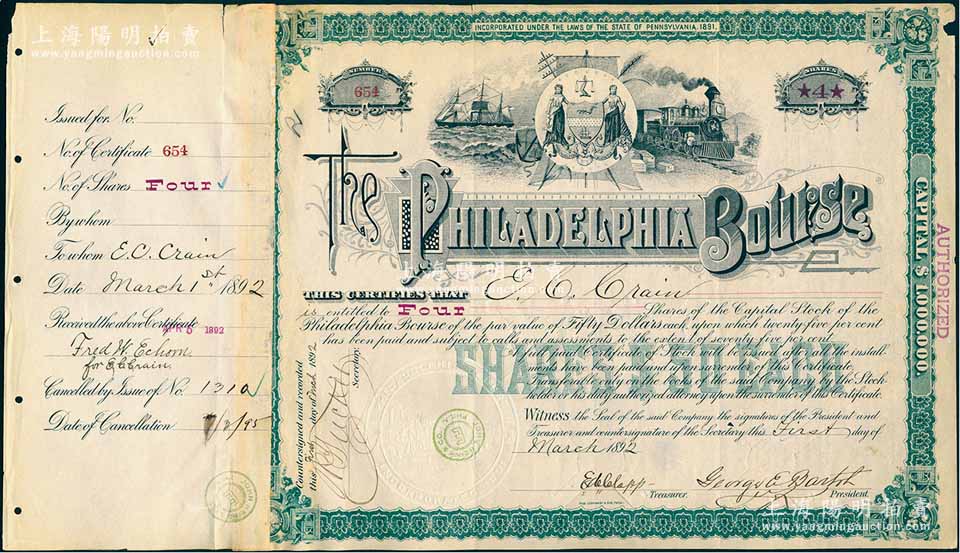 上海陽明拍賣
www.yangmingauction.com
Issued for No.
No. of Certificate 654
No. of Shares Four
By whom
To whom E. C. Crain
Date March 1st 1892
Received the above Certificate
1892
Fred W.
for E. C. Crain
Cancelled by Issue of No. 1310
Date of Cancellation /95
INCORPORATED UNDER THE LAWS OF THE STATE OF PENNSYLVANIA, 1891.
NUMBER
654
SHARES
★4★
The Philadelphia Bourse
CAPITAL $1,000,000.
AUTHORIZED
THIS CERTIFIES THAT E. C. Crain
is entitled to Four Shares of the Capital Stock of the
Philadelphia Bourse of the par value of Fifty Dollars each, upon which twenty five per cent
has been paid and subject to calls and assessments to the extent of seventy five per cent
A full paid Certificate of Stock will be issued after all the install-
ments have been paid and upon surrender of this Certificate.
Transferable only on the books of the said Company by the Stock
holder or his duly authorized attorney upon the surrender of this Certificate.
SHARES $50 EACH
Witness the Seal of the said Company the signatures of the President and
Treasurer and countersignature of the Secretary this First day of
March 1892
Countersigned and recorded
this First day of March 1892
Secretary.
Treasurer.
George E. Bartol
President.
上海陽明拍賣
www.yangmingauction.com